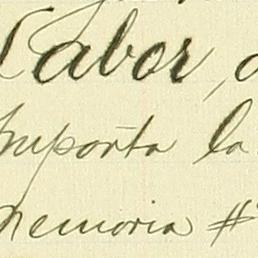 Labor,
Importa la
memoria #